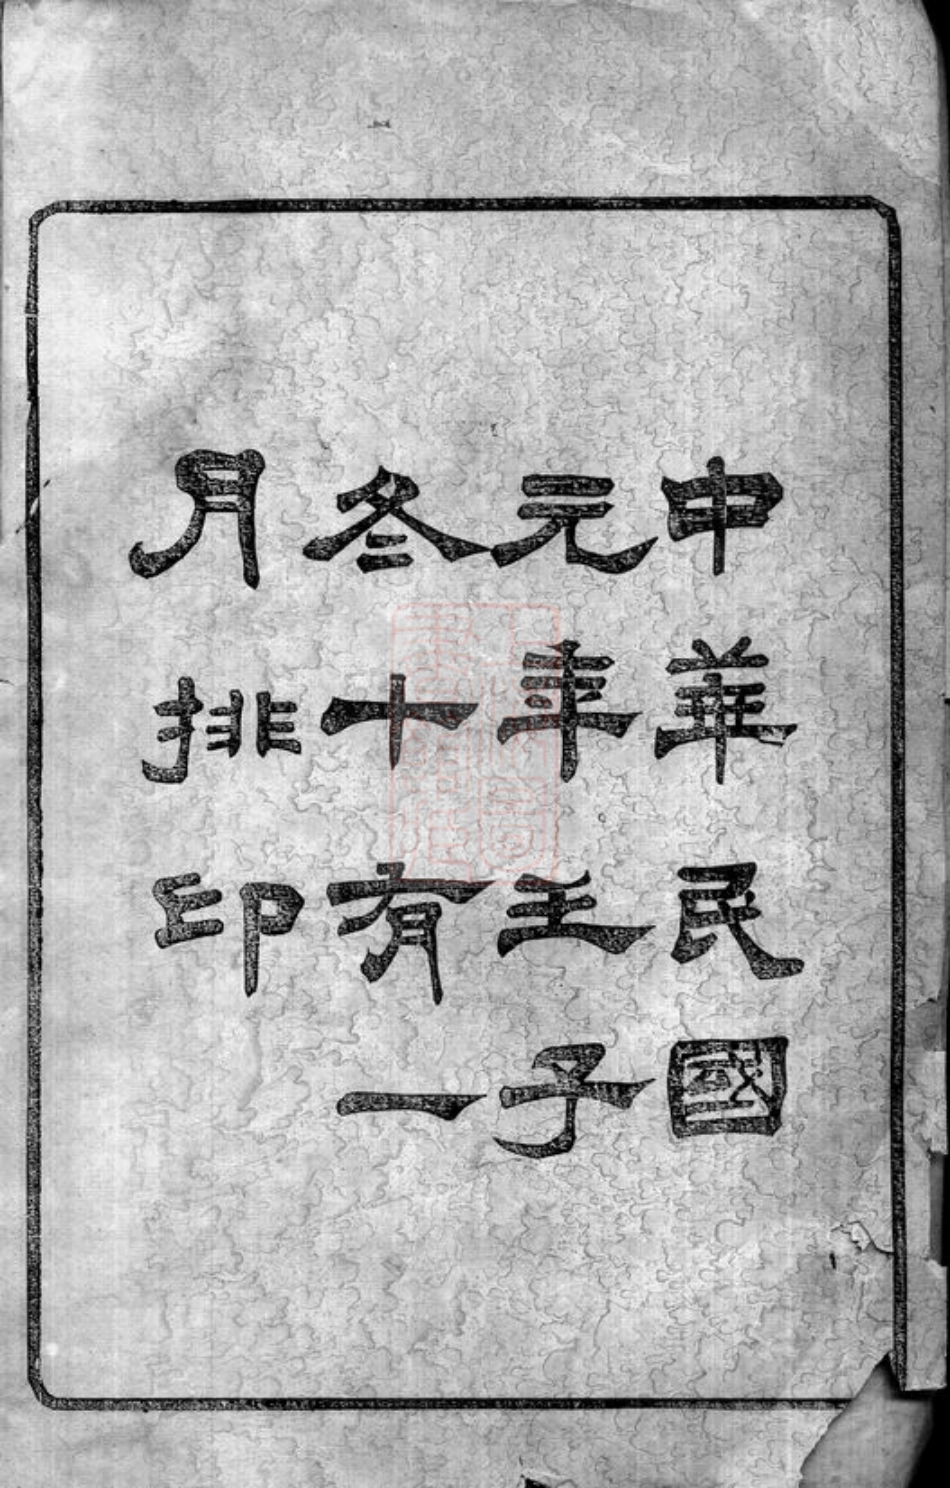 中華民國
元年壬子
冬十有一
月排印